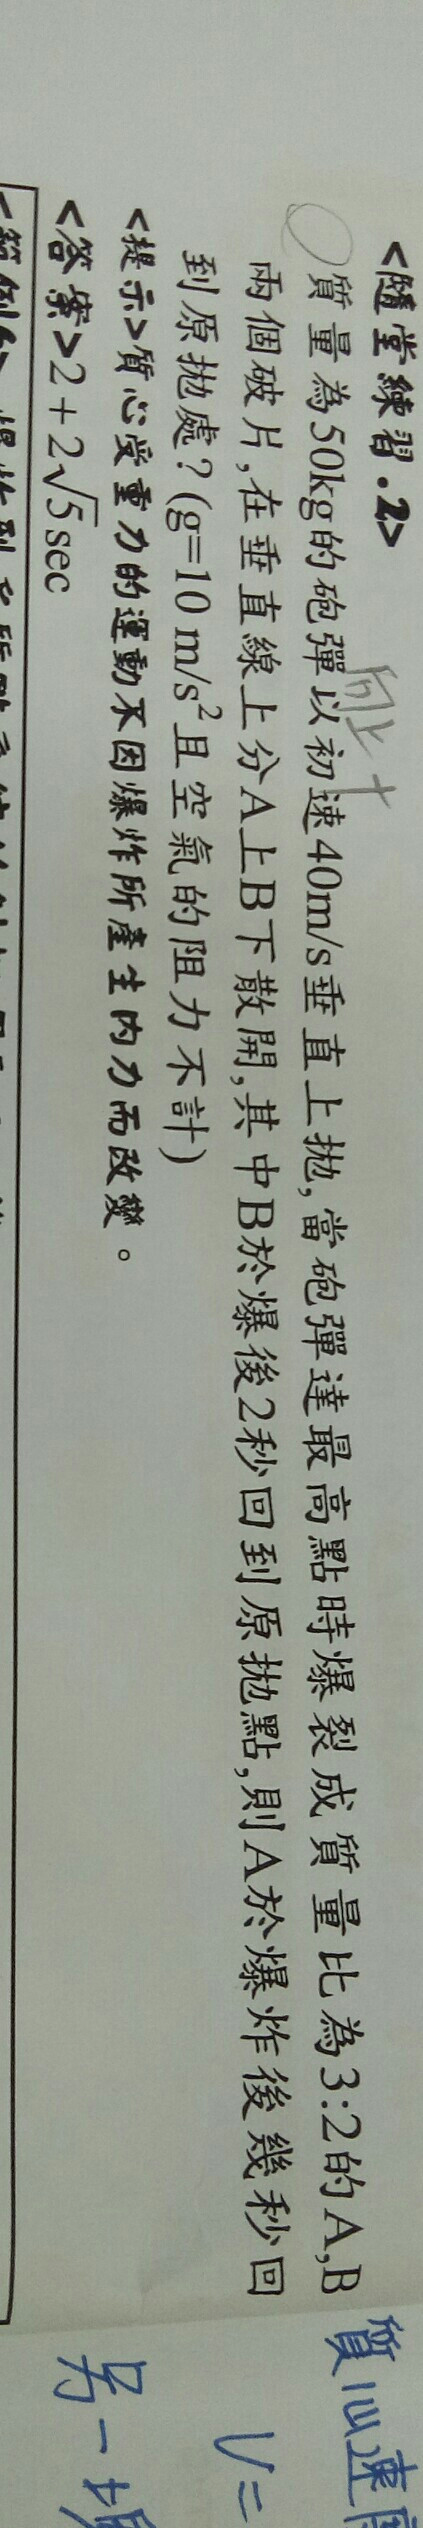 <隨堂練習.2>
向上+
質量為50kg的砲彈以初速40m/s垂直上拋,當砲彈達最高點時爆裂成質量比為3:2的A,B
兩個破片,在垂直線上分A上B下散開,其中B於爆後2秒回到原拋點,則A於爆炸後幾秒回
到原拋處?(g=10 m/s²且空氣的阻力不計)
<提示>質心受重力的運動不因爆炸所產生內力而改變。
<答案>2+2√5sec
質心速度
V=
另一塊